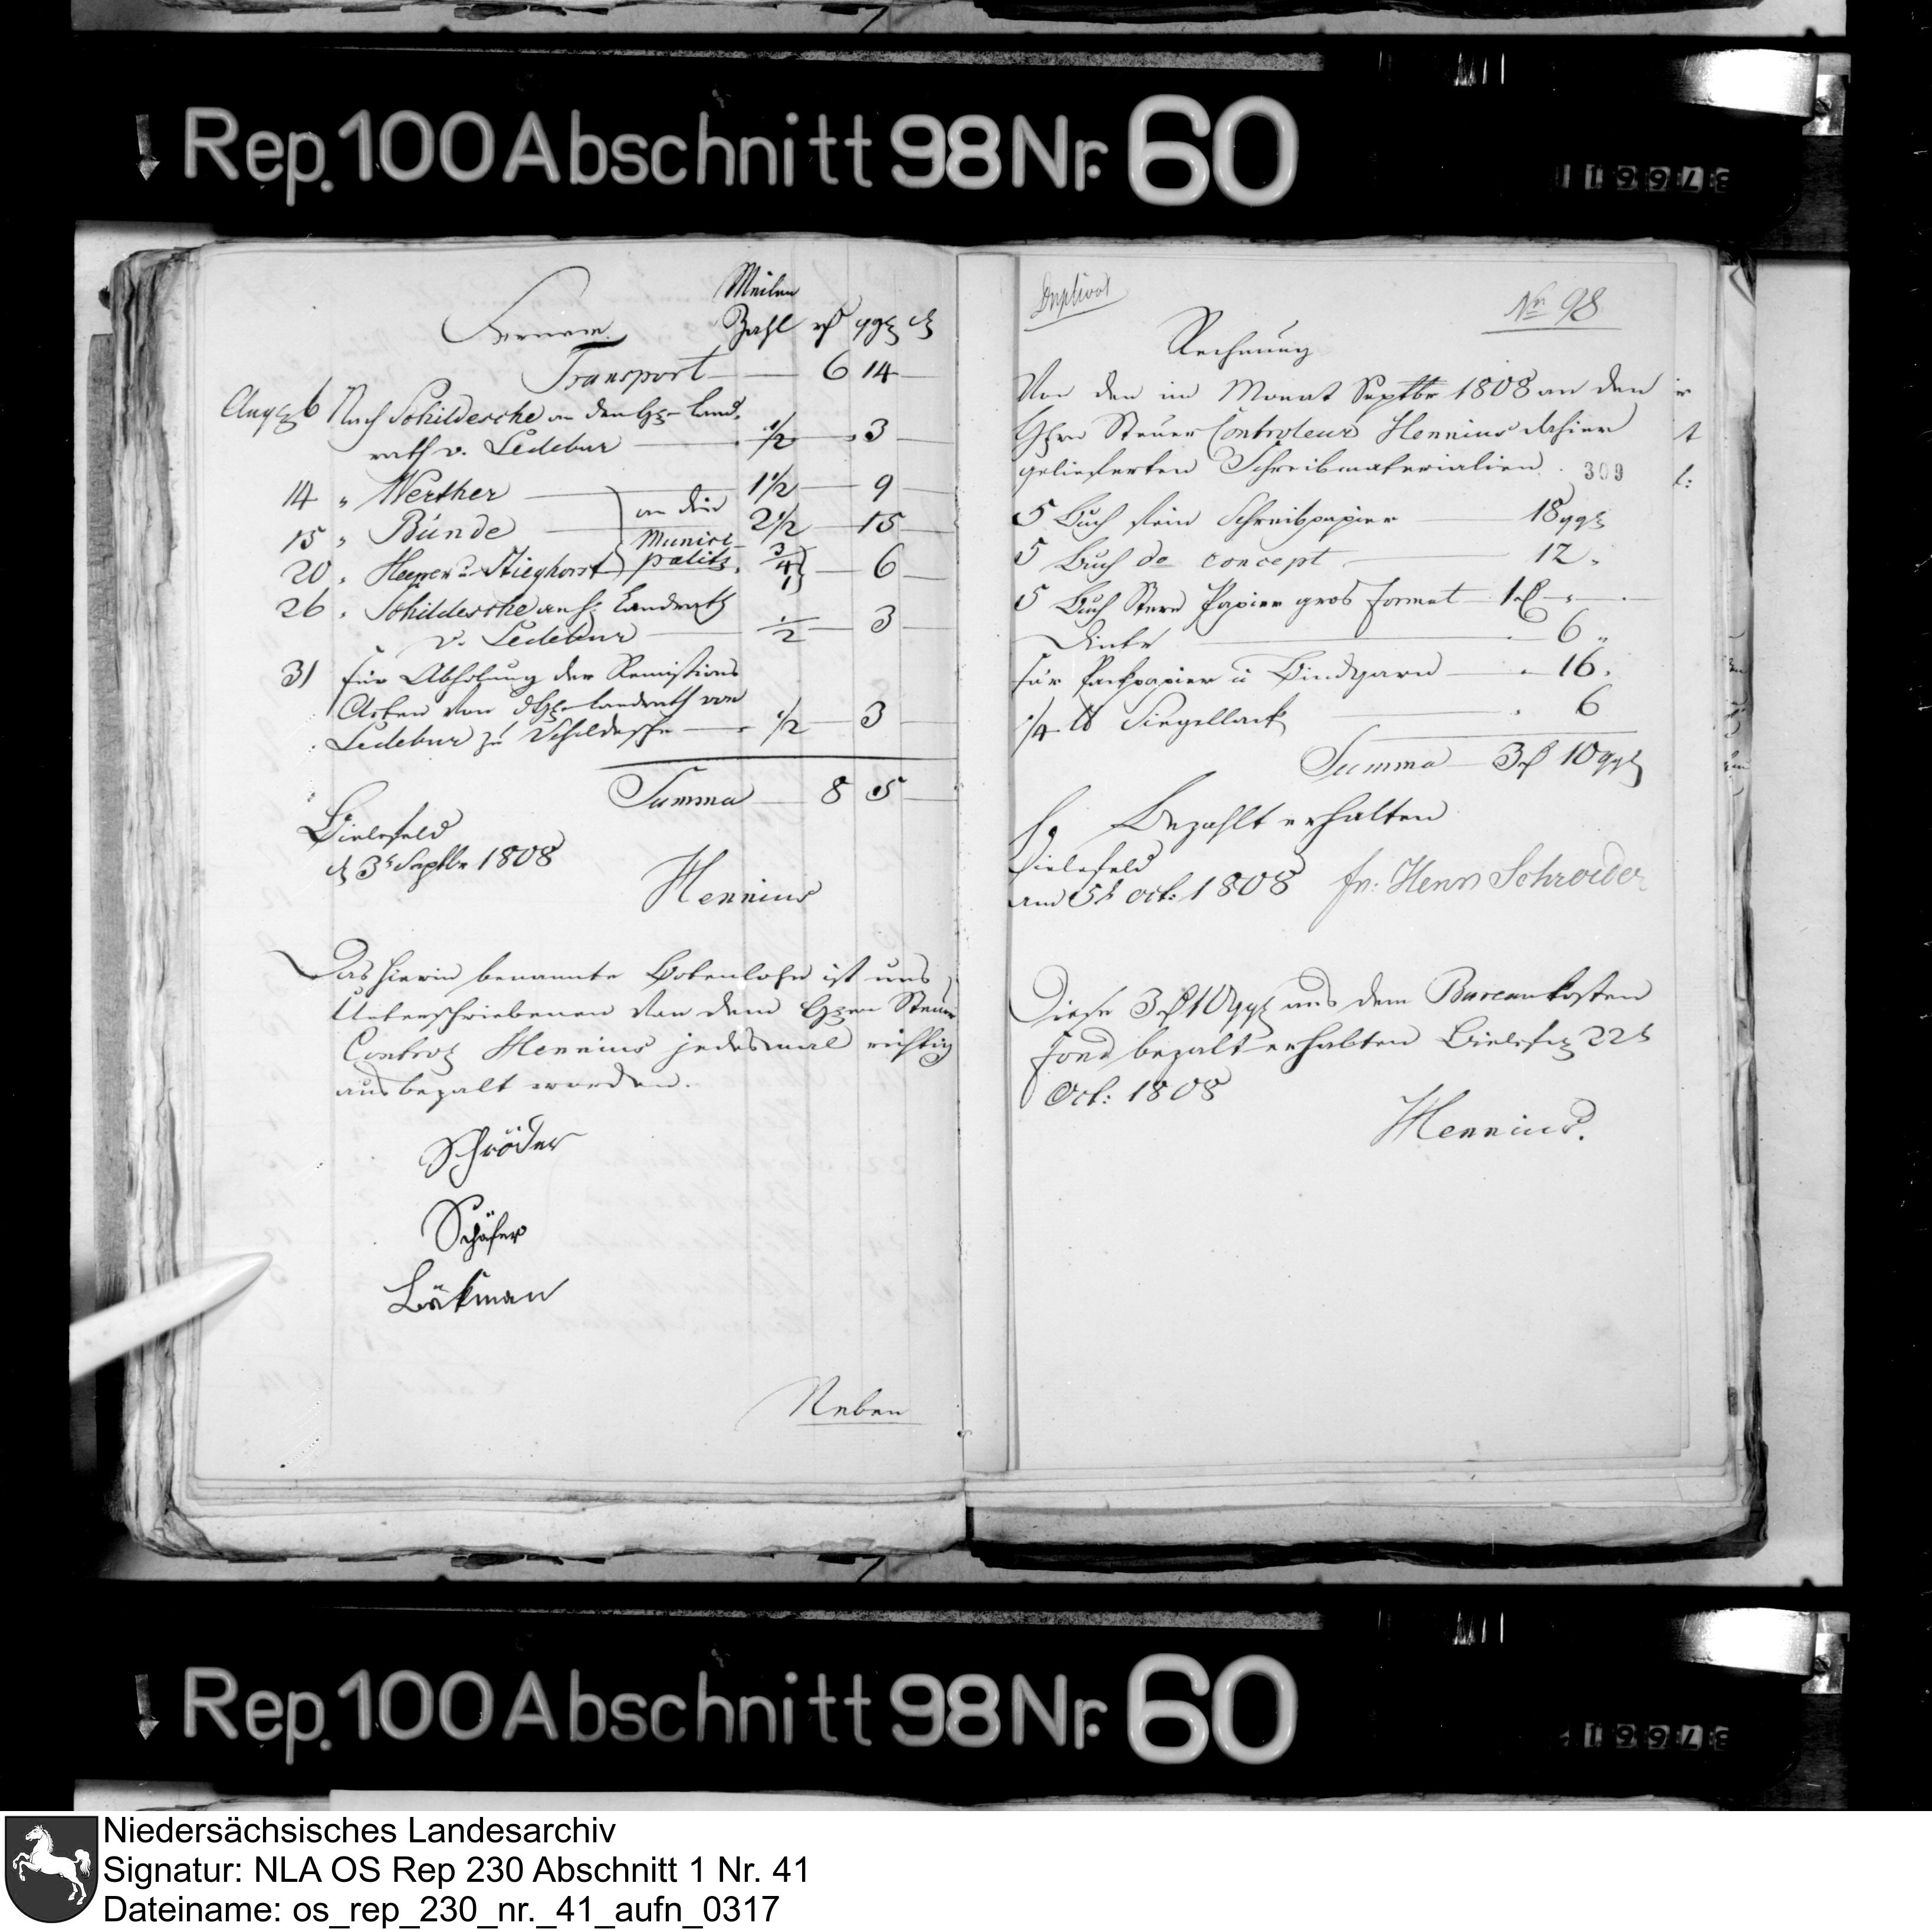 Rep. 100 Abschnitt 98 Nr. 60
Meilen
Ferner. Zahl rt ggr d
Transport 6 14
Aug 6 Nach Schildesche an den H. Land-
rath v. Ledebur 1/2 3
14 " Werther 1 1/2 9
an die
15 " Bünde 2 1/2 15
Munici-
20 " Heepen u. Stieghorst palits. 3/4 1 6
26 " Schildesche an H. Landrath
v. Ledebur 1/2 3
31 für Abholung der Remissions
Acten von d. H. Landrath von
Ledebur zu Schildesche 1/2 3
Summa 8 5
Bielefeld
d 3t Septbr 1808
Hennius
Das hierin benannte Botenlohn ist uns
Unterschriebenen von dem Herrn Steuer
Control Hennius jedesmal richtig
ausbezalt worden.
Schröder
Schäfer
Bökman
Neben
Duplicat
No 98
Rechnung
Von den im Monat Septbr 1808 an den
Herrn Steuer Controleur Hennius dahier
gelieferten Schreibmaterialien.
309
5 Buch fein Schreibpapier 18 ggr
5 Buch do concept 12 "
5 Buch Stern Papier gros Format 1 rt " "
Dinte 6 "
für Packpapier u Bindgarn " 16 "
1/4 lb Siegellack " 6
Summa 3 rt 10 ggr
Bezahlt erhalten
Bielefeld
am 5t oct: 1808 fr: Henr Schroeder
Diese 3 rt 10 ggr aus dem Bureaukosten
Fond bezalt erhalten Bielef 22t
Oct: 1808
Hennius.
Rep. 100 Abschnitt 98 Nr. 60
Niedersächsisches Landesarchiv
Signatur: NLA OS Rep 230 Abschnitt 1 Nr. 41
Dateiname: os_rep_230_nr._41_aufn_0317